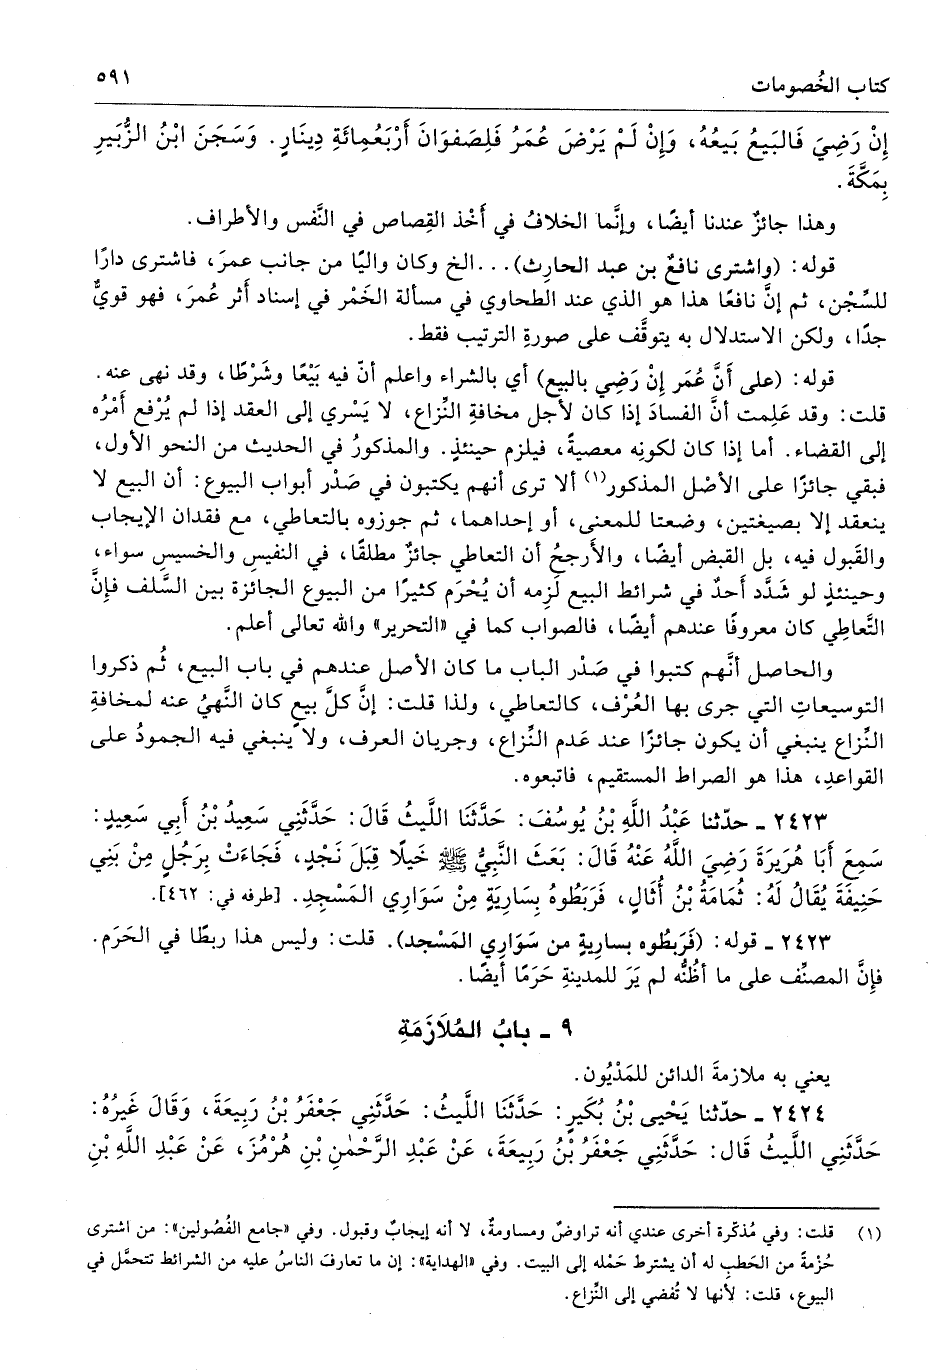 كتاب الخُصومات ٥٩١
إِنْ رَضِيَ فَالبَيعُ بَيعُهُ، وَإِنْ لَمْ يَرْضَ عُمَرُ فَلِصَفوَانَ أَرْبَعُمِائَةِ دِينَارٍ. وَسَجَنَ ابْنُ الزُّبَيرِ
بِمَكَّةَ.
وهذا جائزٌ عندنا أيضًا، وإنَّما الخلافُ في أَخْذ القِصاص في النَّفس والأطراف.
قوله: (واشترى نافعُ بن عبد الحارِث)...الخ وكان واليًا من جانب عمرَ، فاشترى دارًا
للسِّجْن، ثم إنَّ نافعًا هذا هو الذي عند الطحاوي في مسألة الخَمْر في إسناد أثر عُمرَ، فهو قويٌّ
جدًا، ولكن الاستدلال به يتوقَّف على صورةِ الترتيب فقط.
قوله: (على أَنَّ عُمَر إنْ رَضِي بالبيع) أي بالشراء واعلم أنّ فيه بَيْعًا وشَرْطًا، وقد نهى عنه.
قلت: وقد عَلِمت أنَّ الفسادَ إذا كان لأجل مخافةِ النِّزاع، لا يَسْري إلى العقد إذا لم يُرْفع أَمْرُه
إلى القضاء. أما إذا كان لكونِه معصيةً، فيلزم حينئذٍ. والمذكورُ في الحديث من النحو الأول،
فبقي جائزًا على الأَصْل المذكور(١) ألا ترى أنهم يكتبون في صَدْر أبواب البيوع: أن البيع لا
ينعقد إلا بصيغتين، وضعتا للمعنى، أو إحداهما، ثم جوزوه بالتعاطي، مع فقدان الإيجاب
والقَبول فيه، بل القبض أيضًا، والأَرجحُ أن التعاطي جائزٌ مطلقًا، في النفيسِ والخسيسِ سواء،
وحينئذٍ لو شَدَّد أَحدٌ في شرائط البيع لَزِمه أن يُحْرَم كثيرًا من البيوع الجائزة بين السَّلف فإنَّ
التَّعاطِي كان معروفًا عندهم أيضًا، فالصواب كما في «التحرير» والله تعالى أعلم.
والحاصل أنَّهم كتبوا في صَدْر الباب ما كان الأصل عندهم في باب البيع، ثُم ذكروا
التوسيعاتِ التي جرى بها العُرْف، كالتعاطي، ولذا قلت: إنَّ كلَّ بيعٍ كان النَّهيُ عنه لمخافةِ
النِّزاع ينبغي أن يكون جائزًا عند عَدم النِّزاع، وجريان العرف، ولا ينبغي فيه الجمودُ على
القواعدِ، هذا هو الصراط المستقيم، فاتبعوه.
٢٤٢٣ ـ حدّثنا عَبْدُ اللَّهِ بْنُ يُوسُفَ: حَدَّثَنَا اللَّيثُ قَالَ: حَدَّثَنِي سَعِيدُ بْنُ أَبِي سَعِيدٍ:
سَمِعَ أَبَا هُرَيرَةَ رَضِيَ اللَّهُ عَنْهُ قَالَ: بَعَثَ النَّبِيُّ ﷺ خَيلًا قِبَلَ نَجْدٍ، فَجَاءَتْ بِرَجُلٍ مِنْ بَنِي
حَنِيفَةَ يُقَالُ لَهُ: ثُمَامَةُ بْنُ أُثَالٍ، فَرَبَطُوهُ بِسَارِيَةٍ مِنْ سَوَارِي المَسْجِدِ. [طرفه في: ٤٦٢].
٢٤٢٣ ـ قوله: (فَرَبطُوه بساريةٍ من سَوَارِي المَسْجد). قلت: وليس هذا ربطًا في الحَرَم.
فإنَّ المصنِّف على ما أظنُّه لم يَرَ للمدينةِ حَرَمًا أيضًا.
٩ ـ بابُ المُلَازَمَةِ
يعني به ملازمةَ الدائن للمَدْيُون.
٢٤٢٤ ـ حدّثنا يَحْيى بْنُ بُكَيرٍ: حَدَّثَنَا اللَّيثُ: حَدَّثَنِي جَعْفَرُ بْنُ رَبِيعَةَ، وَقَالَ غَيرُهُ:
حَدَّثَنِي اللَّيثُ قَال: حَدَّثَنِي جَعْفَرُ بْنُ رَبِيعَةَ، عَنْ عَبْدِ الرَّحْمٰنِ بْنِ هُرْمُزَ، عَنْ عَبْدِ اللَّهِ بْنِ
(١) قلت: وفي مُذكّرة أخرى عندي أنه تراوضٌ ومساومةٌ، لا أنه إيجابٌ وقبول. وفي «جامع الفُصُولين»: من اشترى
حُزْمةً من الحَطبِ له أن يشترطَ حَمْله إلى البيت. وفي «الهداية»: إن ما تعارفَ الناسُ عليه من الشرائط تتحمَّل في
البيوع، قلت: لأنها لا تُفضي إلى النِّزاع.